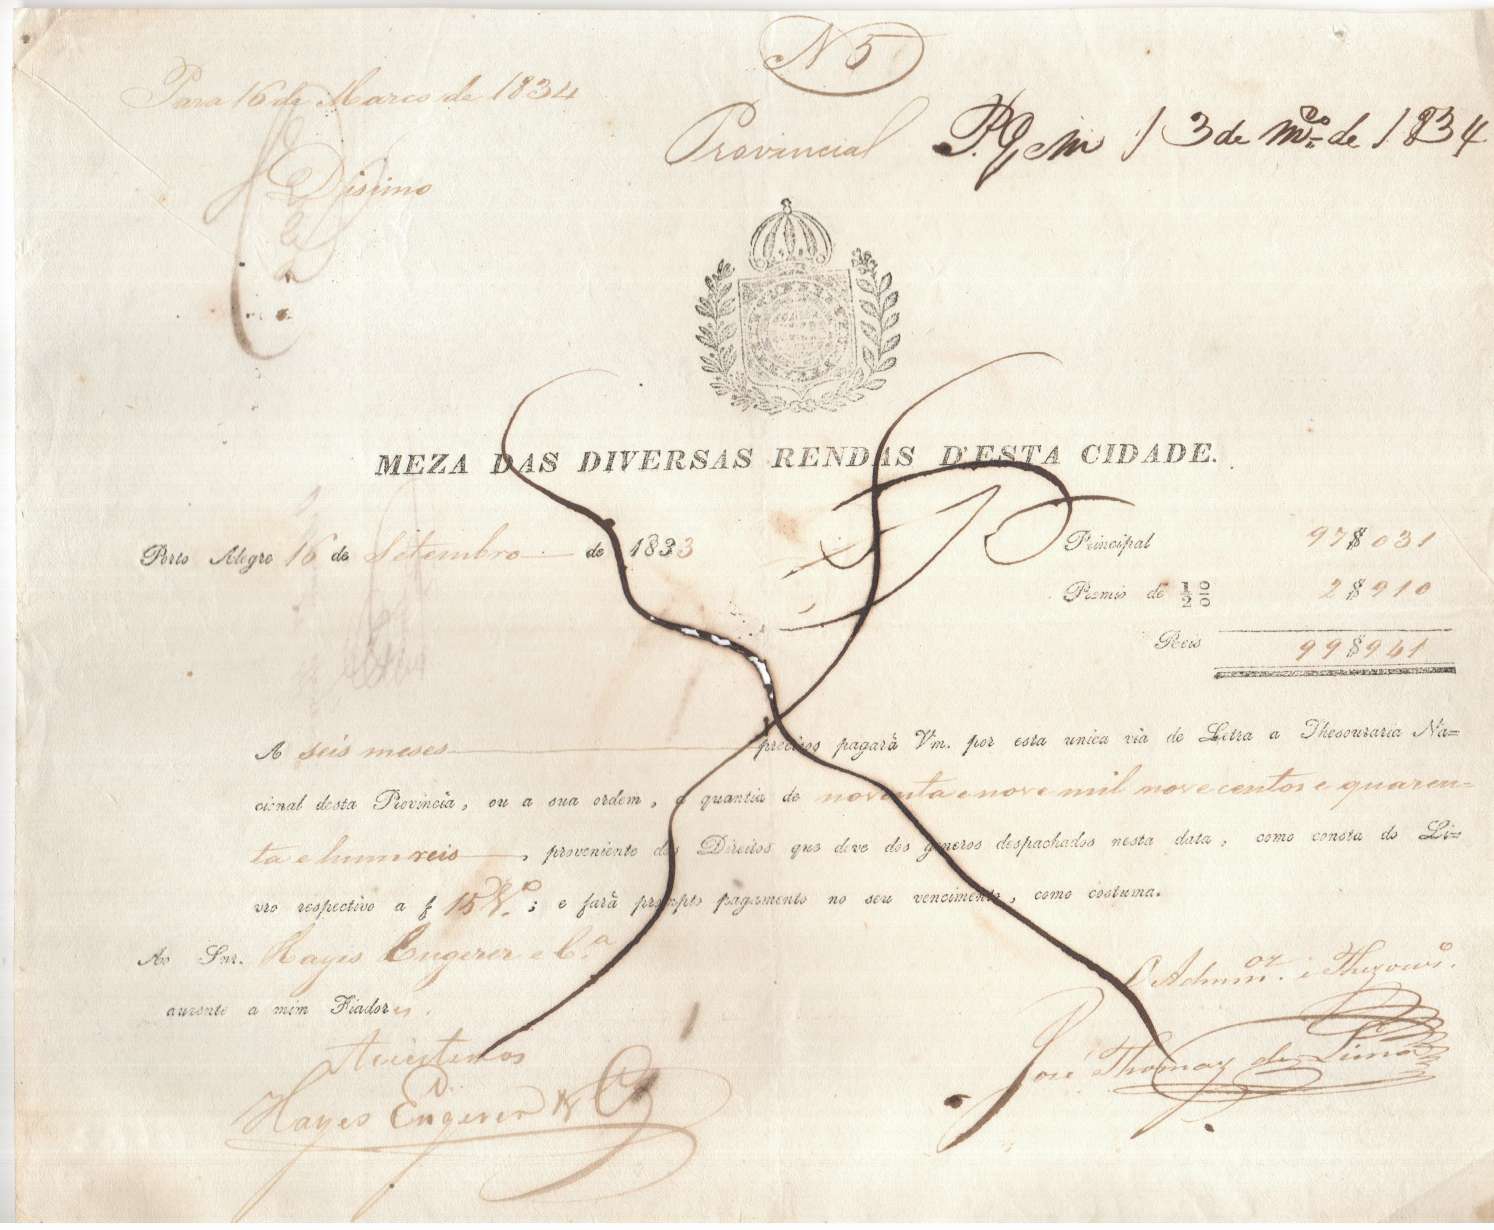 N 5
Para 16 de Março de 1834
Provincial P.G em 13 de M.ço de 1834
Disimo
MEZA DAS DIVERSAS RENDAS D'ESTA CIDADE.
Porto Alegre 16 de Setembro de 1833
Principal 97$031
Premio de ½ %  2$910
Reis 99$941
A seis meses precizos pagará Vm. por esta unica via de Letra a Thesouraria Na=
cional desta Provincia, ou a sua ordem, a quantia de noventa e nove mil nove centos e quaren-
ta e hum reis, proveniente dos Direitos que deve dos generos despachados nesta data, como consta do Li=
vro respectivo a f 15 V.º; e fará prompto pagamento no seu vencimento, como costuma.
Ao Snr. Hayis Engerer e C.ª
auzente a mim Fiadores.
O Admin.or e Thezour.º
Aceitamos
José Thomaz de Lima
Hayes Engerer & Cª